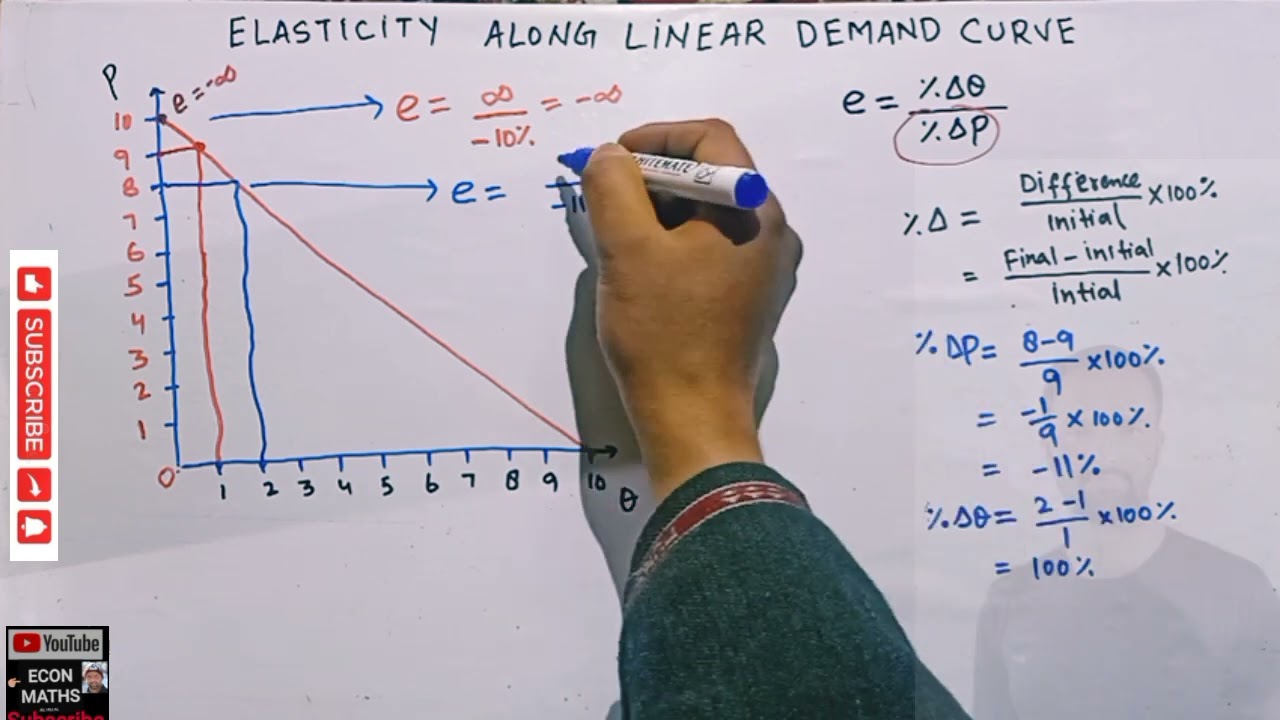 ELASTICITY ALONG LINEAR DEMAND CURVE
P
e=-∞
e = ∞/-10% = -∞
e =
10
9
8
7
6
5
4
3
2
1
0
1 2 3 4 5 6 7 8 9 10 θ
e = %Δθ/%ΔP
%Δ = Difference/initial ×100%
= Final-initial/intial ×100%
%ΔP = 8-9/9 ×100%
= -1/9 × 100%
= -11%
%Δθ = 2-1/1 ×100%
= 100%
WHITEMATE
SUBSCRIBE
YouTube
ECON
MATHS
Subscribe